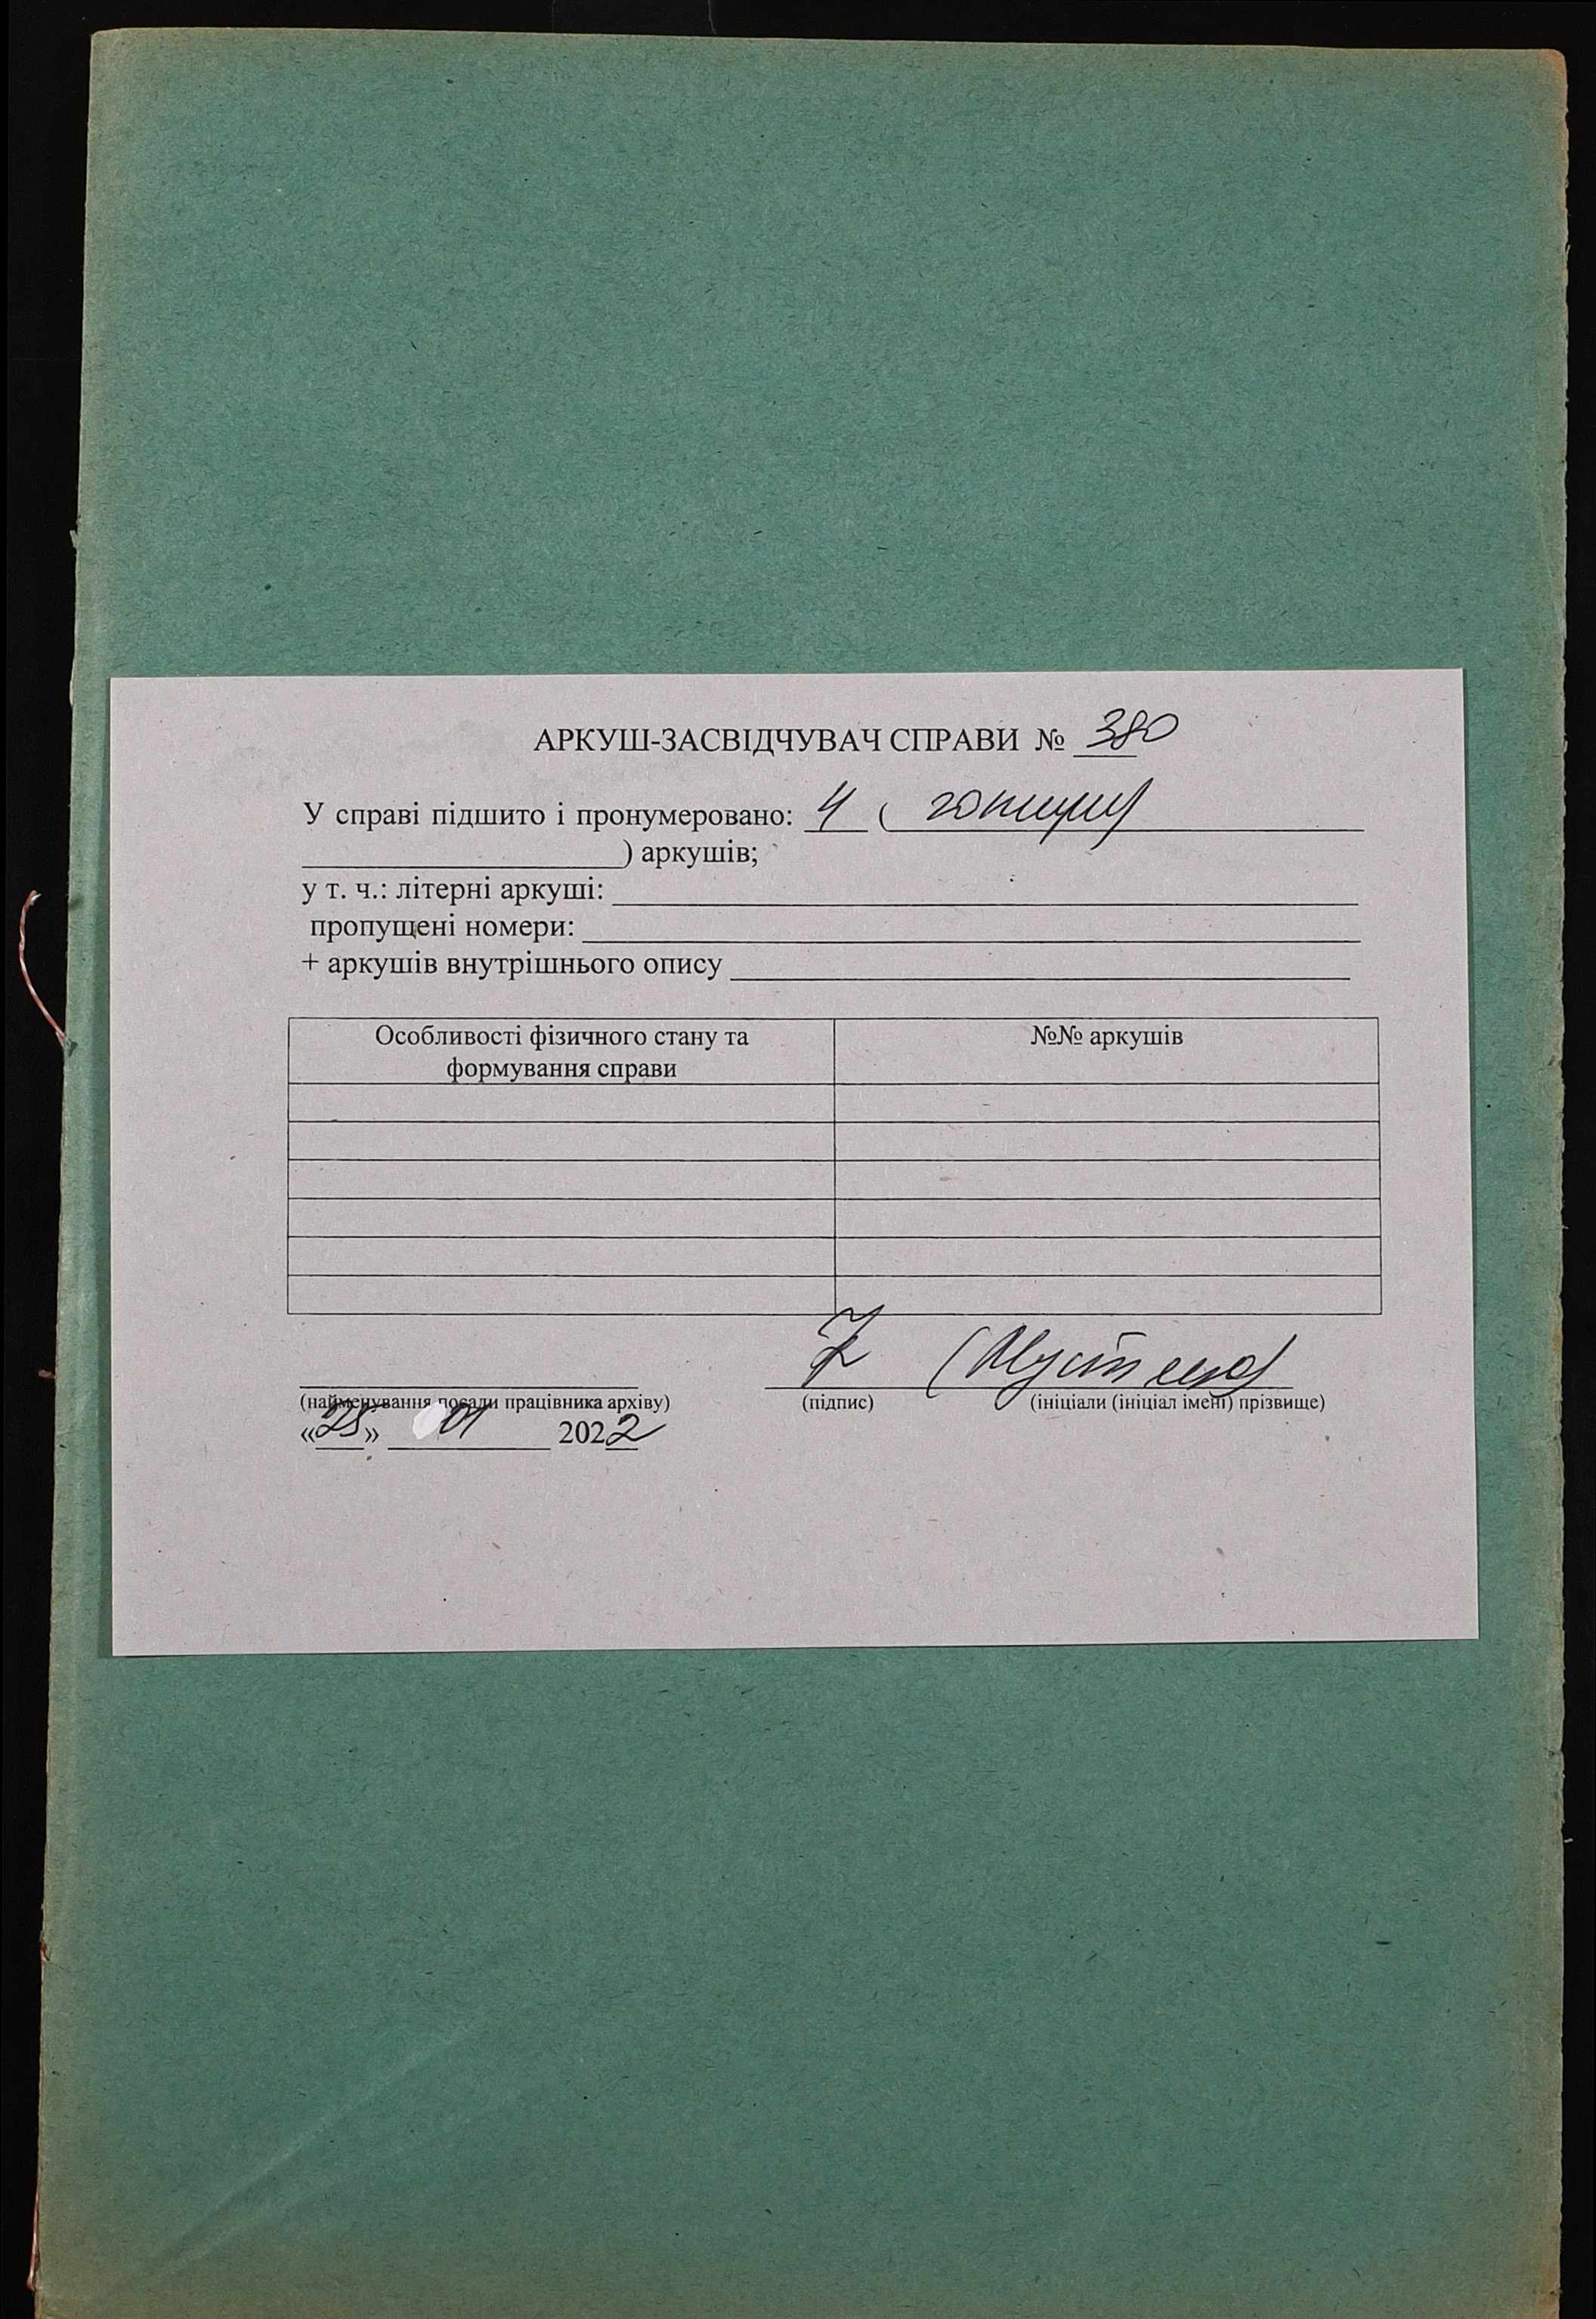 АРКУШ-ЗАСВІДЧУВАЧ СПРАВИ № 380
У справі підшито і пронумеровано: 4 (
) аркушів;
у т. ч.: літерні аркуші:
пропущені номери:
+ аркушів внутрішнього опису
Особливості фізичного стану та
формування справи
№№ аркушів
(найменування посади працівника архіву)
(підпис)
(ініціали (ініціал імені) прізвище)
«25» 01 2022